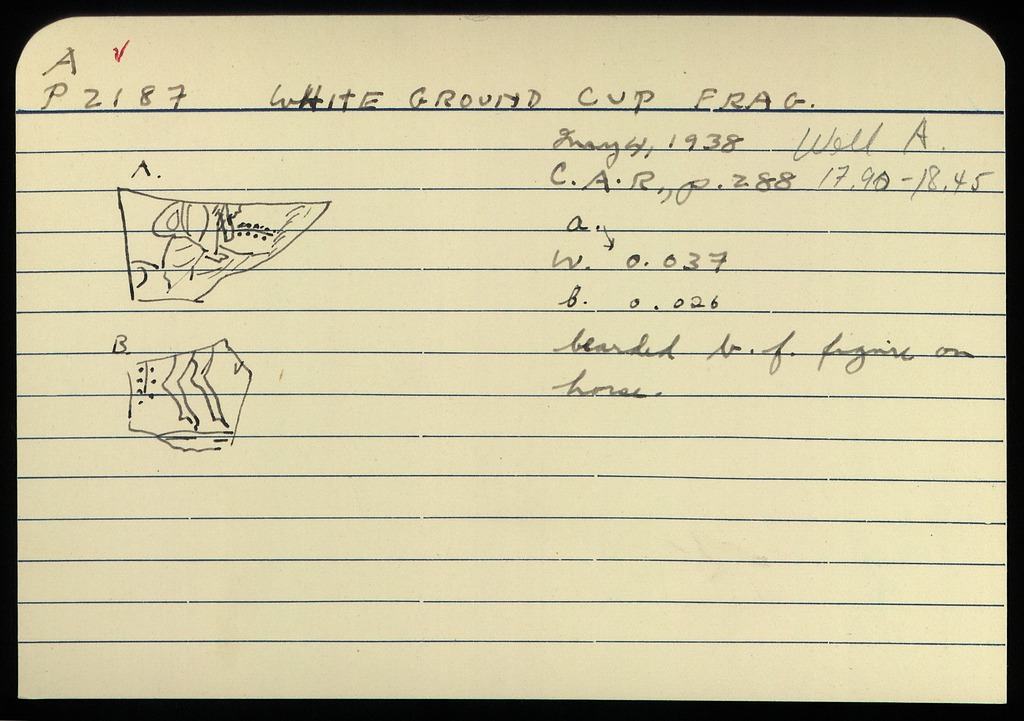 A
P 2187 WHITE GROUND CUP FRAG.
May 4, 1938 Well A.
C.A.R., p. 288 17.90-18.45
A.
a.
W. 0.037
b. 0.026
B.
bearded b.f. figure on
horse.